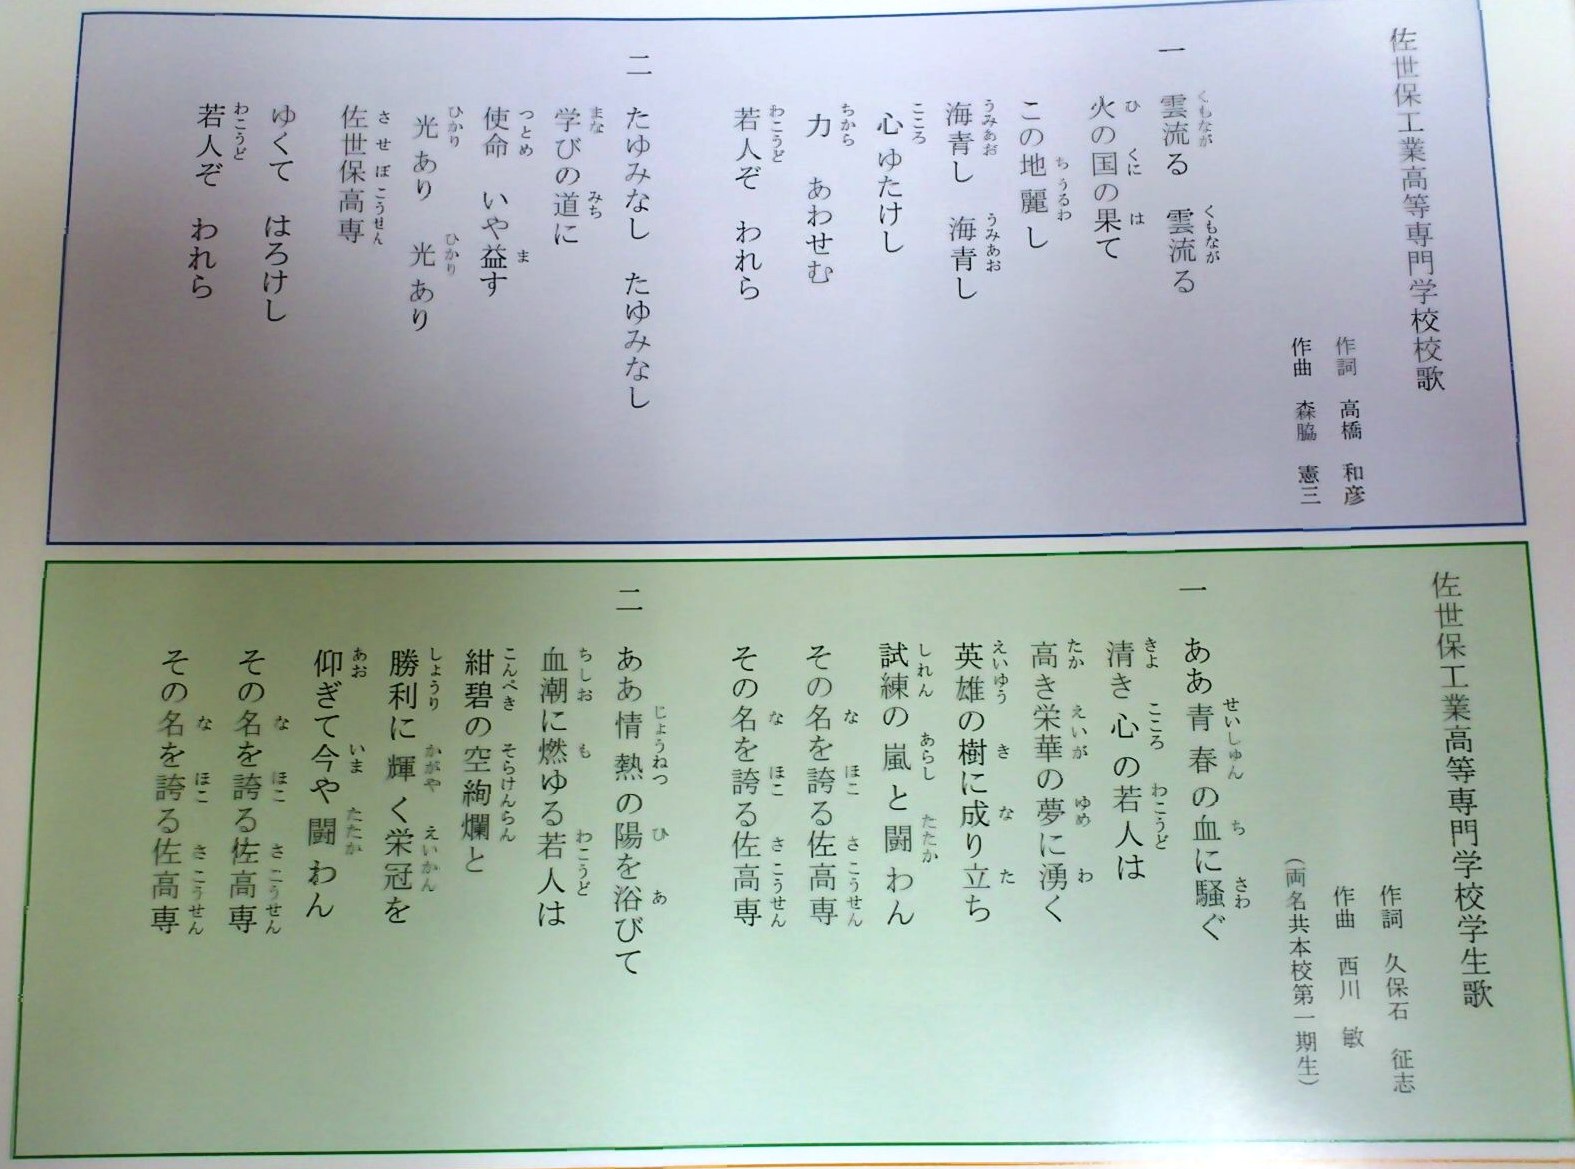 佐世保工業高等専門学校校歌
作詞 高橋 和彦
作曲 森脇 憲三
一 雲流る 雲流る
火の国の果て
この地麗し
海青し 海青し
心ゆたけし
力 あわせむ
若人ぞ われら
二 たゆみなし たゆみなし
学びの道に
使命 いや益す
光あり 光あり
佐世保高専
ゆくて はろけし
若人ぞ われら
佐世保工業高等専門学校学生歌
作詞 久保石 征志
作曲 西川 敏
(両名共本校第一期生)
一 ああ青春の血に騒ぐ
清き心の若人は
高き栄華の夢に湧く
英雄の樹に成り立ち
試練の嵐と闘わん
その名を誇る佐高専
その名を誇る佐高専
二 ああ情熱の陽を浴びて
血潮に燃ゆる若人は
紺碧の空絢爛と
勝利に輝く栄冠を
仰ぎて今や闘わん
その名を誇る佐高専
その名を誇る佐高専